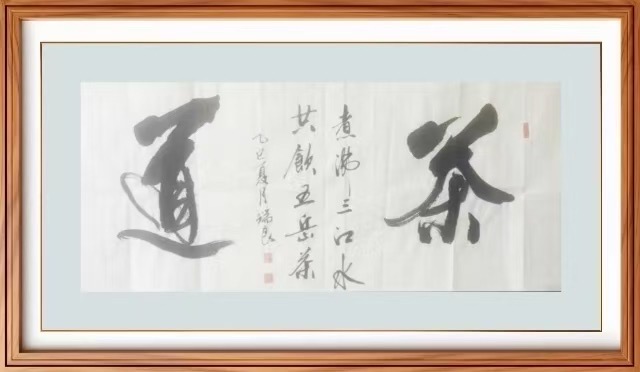 茶
煮沸三江水
共飲五岳茶
乙巳夏月瑞良
道